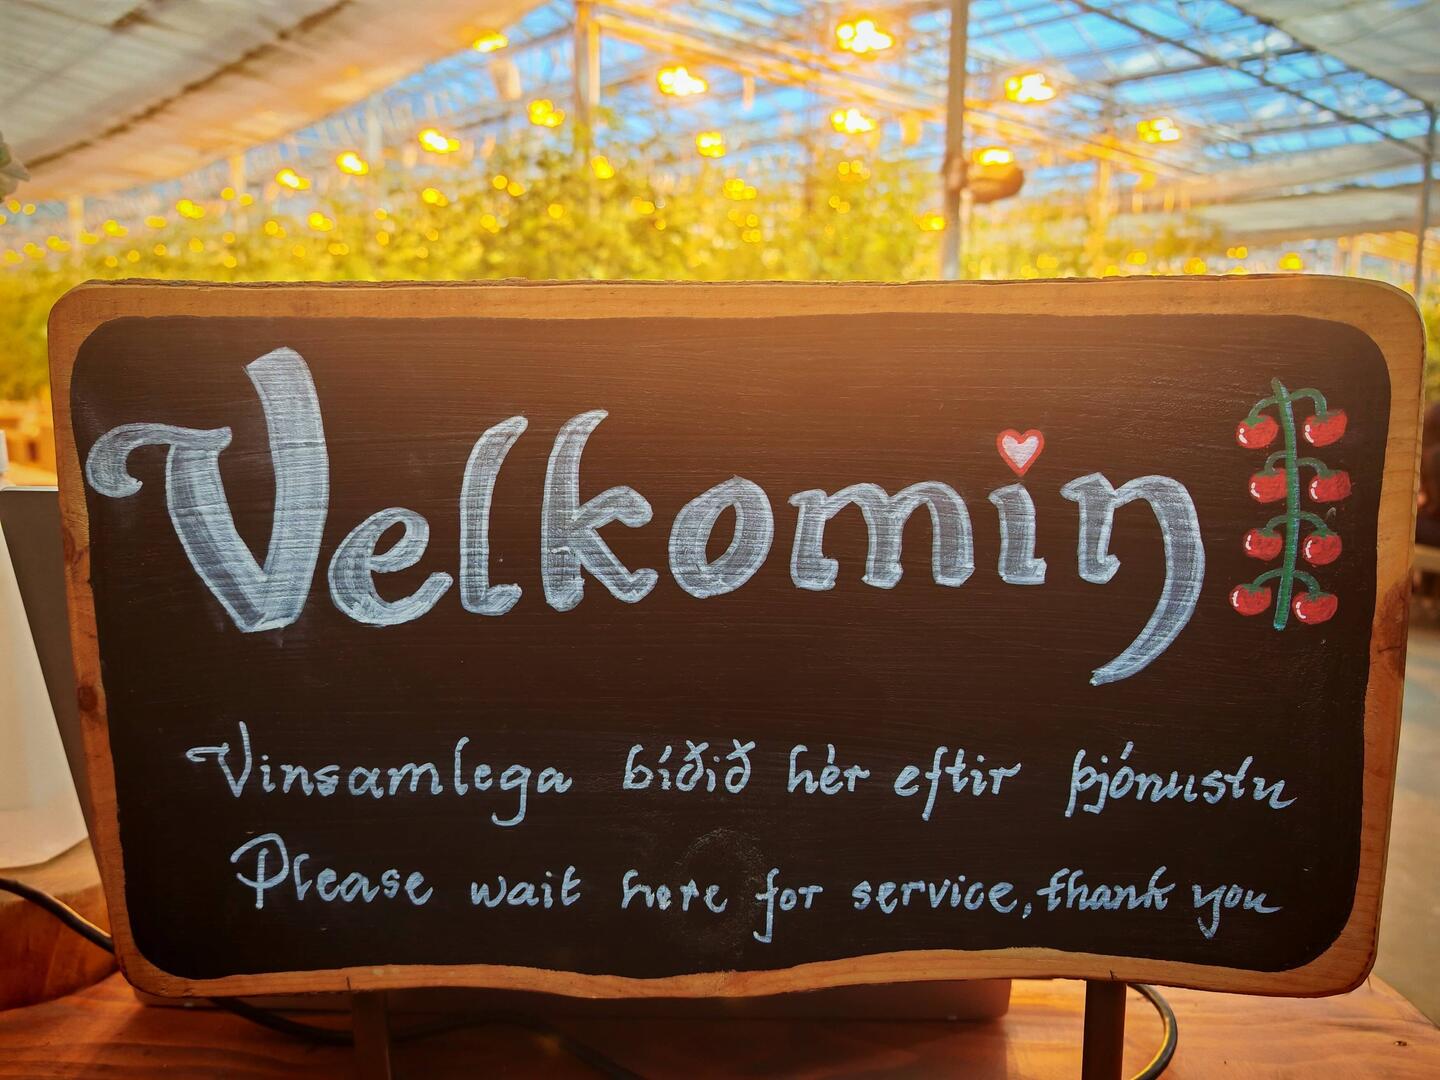 Velkomin
Vinsamlega bíðið hér eftir þjónustu
Please wait here for service, thank you